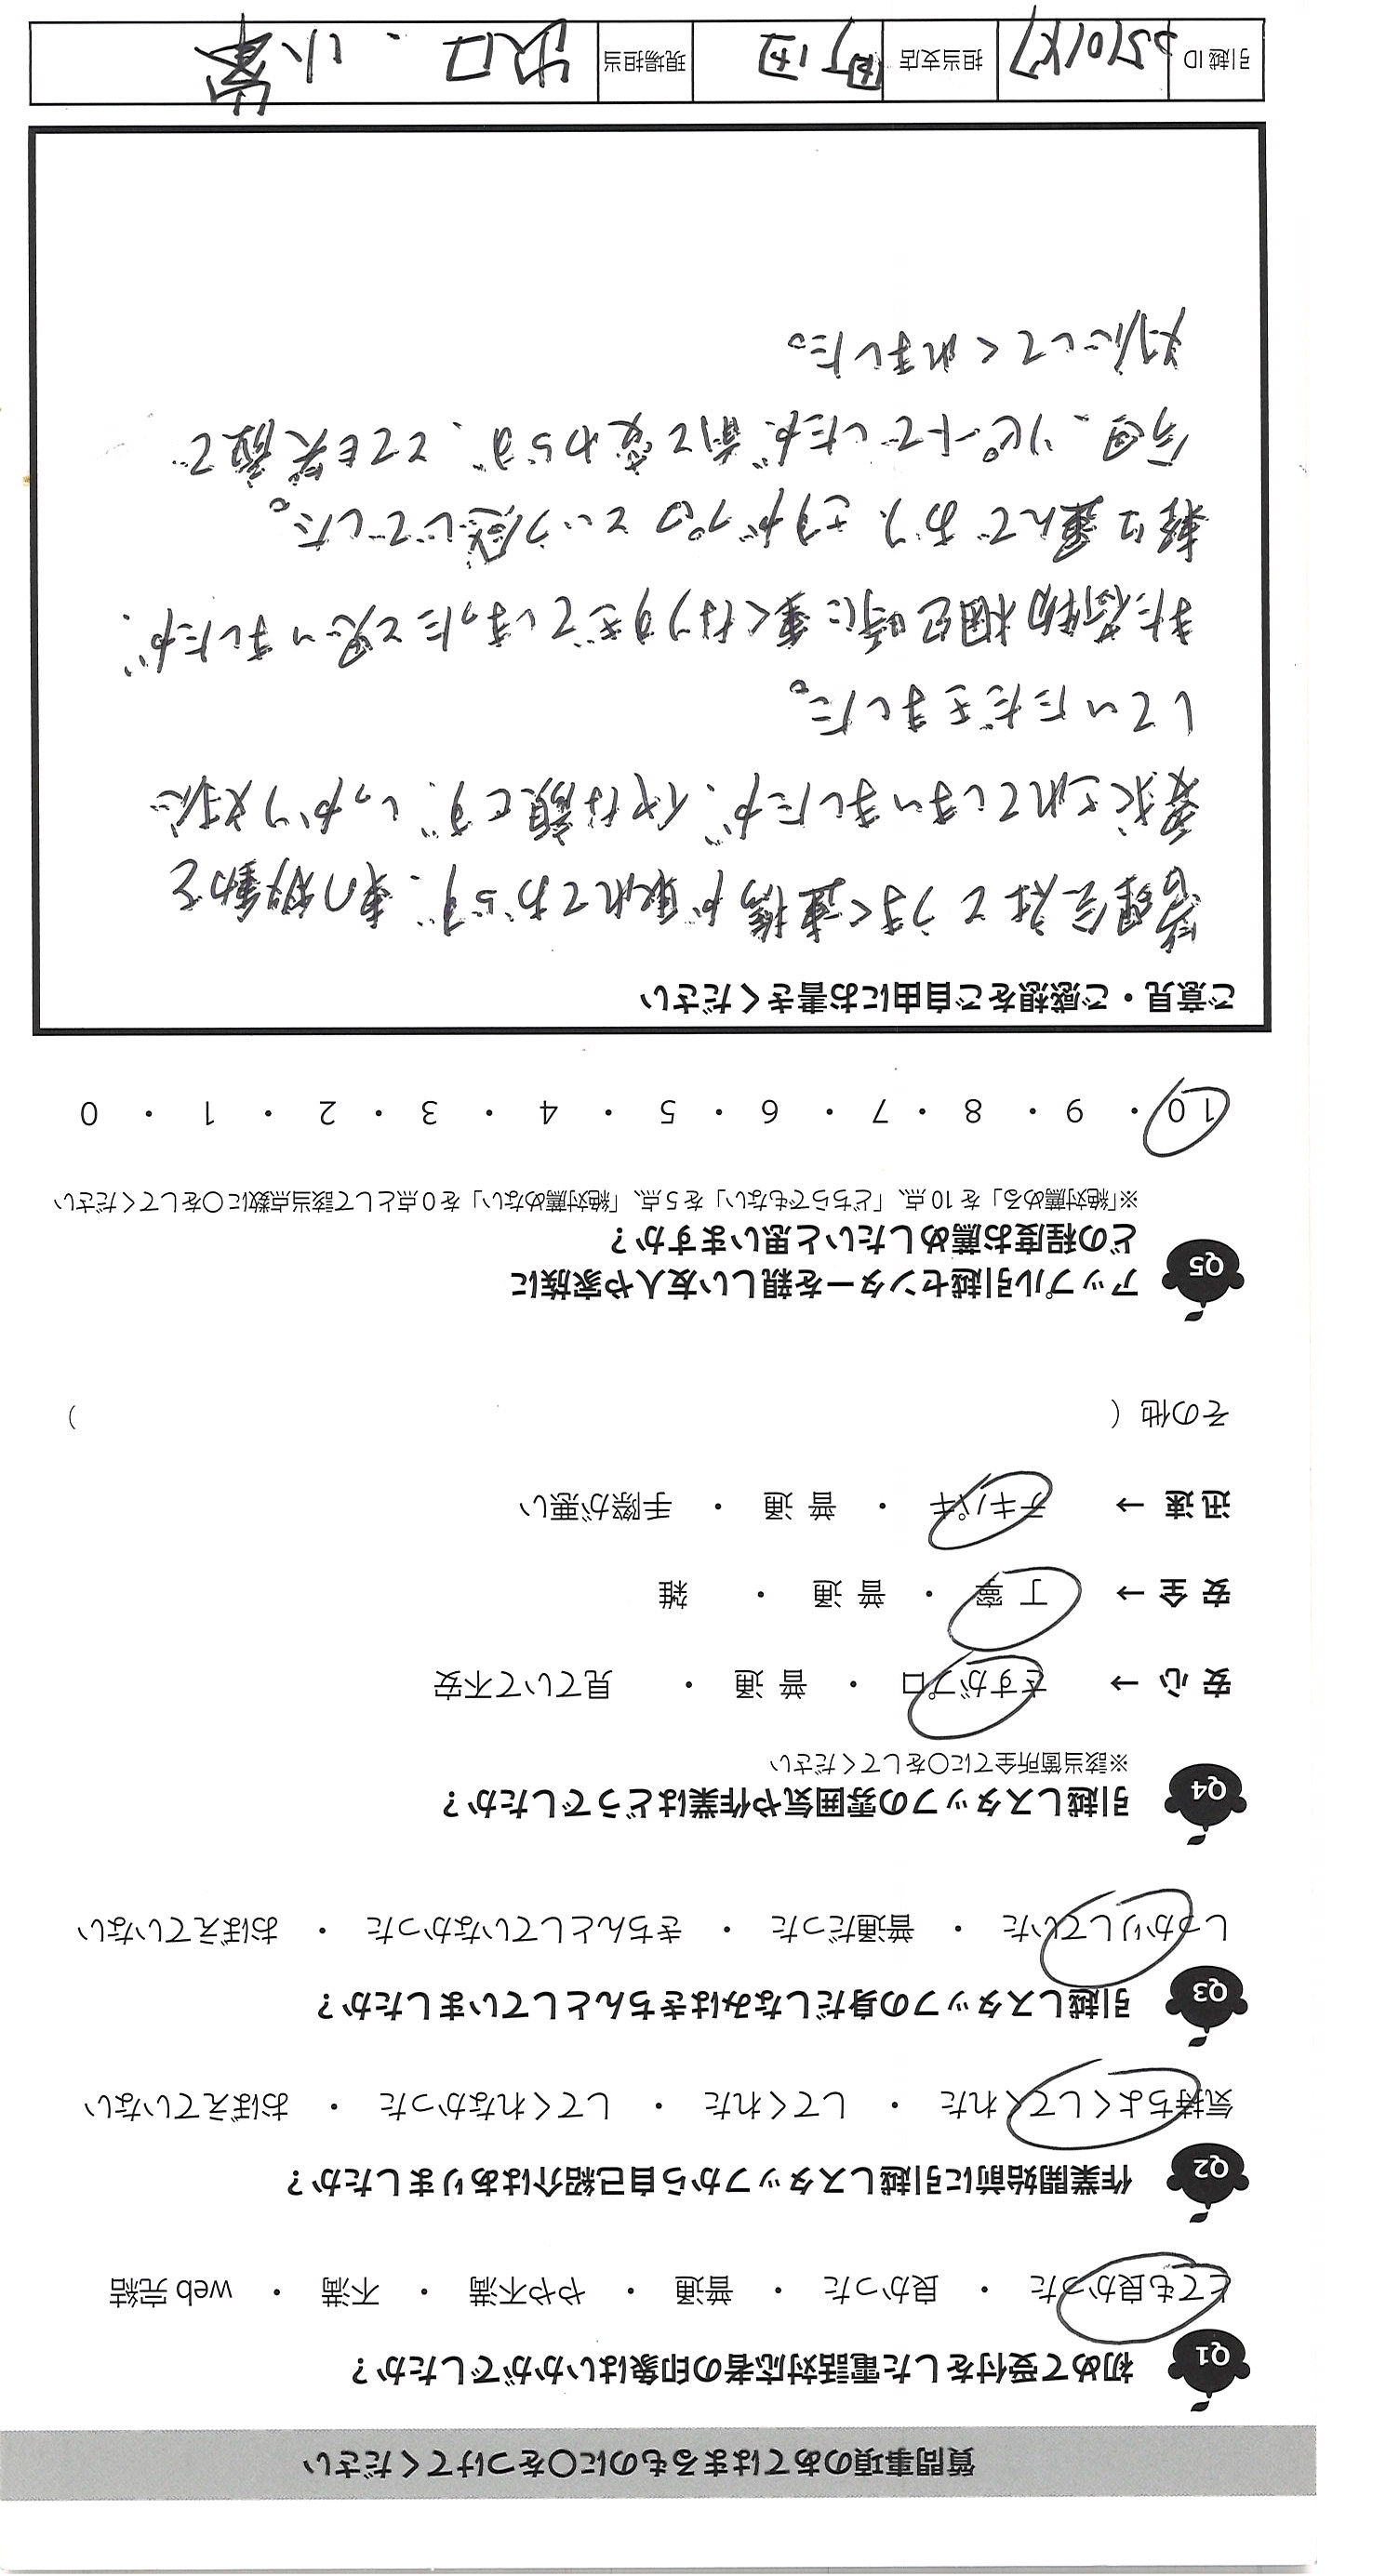 質問事項のあてはまるものに〇をつけてください
Q1 初めて受付をした電話対応者の印象はいかがでしたか？
とても良かった ・ 良かった ・ 普通 ・ やや不満 ・ 不満 ・ web 完結
Q2 作業開始前に引越しスタッフから自己紹介はありましたか？
気持ちよくしてくれた ・ してくれた ・ してくれなかった ・ おぼえていない
Q3 引越しスタッフの身だしなみはきちんとしていましたか？
しっかりしていた ・ 普通だった ・ きちんとしていなかった ・ おぼえていない
Q4 引越しスタッフの雰囲気や作業はどうでしたか？
※該当箇所全てに〇をしてください
安心 → さすがプロ ・ 普通 ・ 見ていて不安
安全 → 丁寧 ・ 普通 ・ 雑
迅速 → テキパキ ・ 普通 ・ 手際が悪い
その他（ ）
Q5 アップル引越センターを親しい友人や家族に
どの程度お薦めしたいと思いますか？
※「絶対薦める」を 10 点、「どちらでもない」を 5 点、「絶対薦めない」を 0 点として該当点数に〇をしてください
10 ・ 9 ・ 8 ・ 7 ・ 6 ・ 5 ・ 4 ・ 3 ・ 2 ・ 1 ・ 0
ご意見・ご感想をご自由にお書きください
管理会社とうまく連携が取れておらず、車の移動を
要求されてしまいましたが、イヤな顔せず、しっかり対応
していただきました。
また荷物梱包時に重くなりすぎてしまったと思いましたが、
軽々運んでおり、さすがプロという感じでした。
今回、リピートでしたが前と変わらず、とても笑顔で
対応してくれました。
引越 ID 担当支店 町田 現場担当 沢口、小